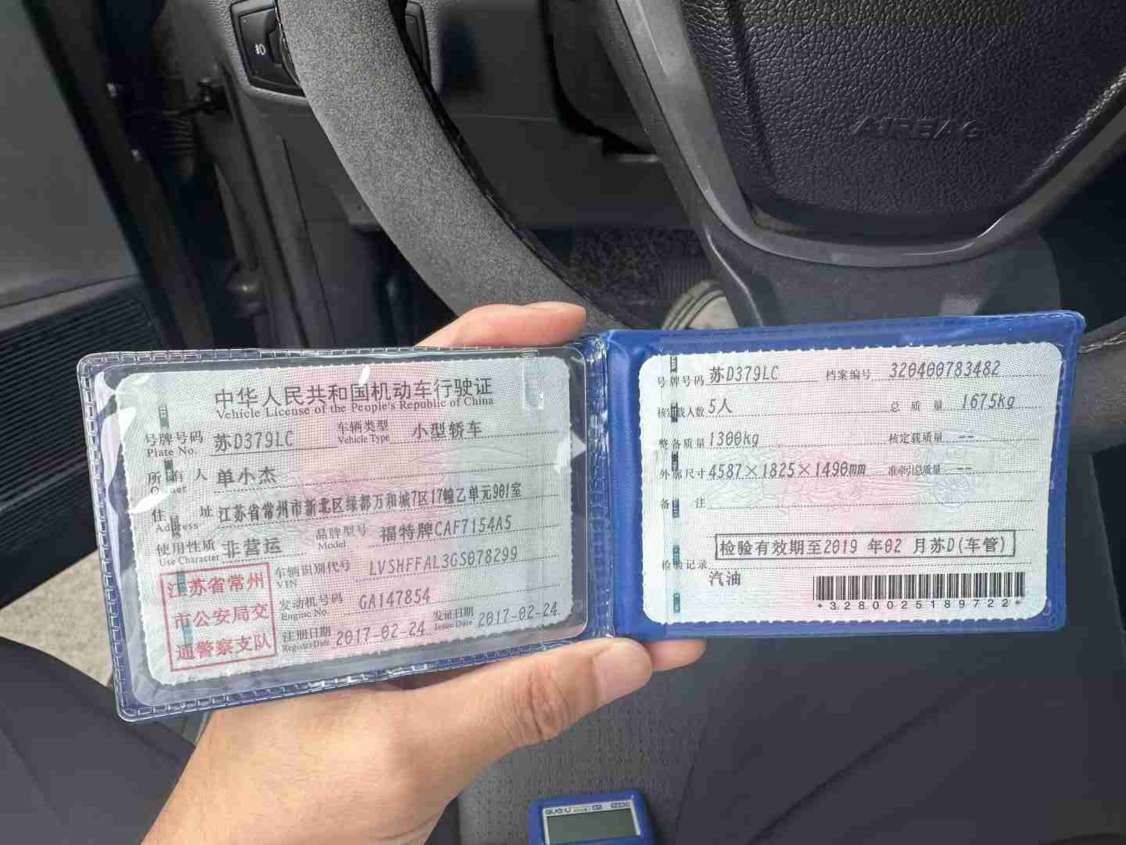 AIRBAG
中华人民共和国机动车行驶证
Vehicle License of the People's Republic of China
号牌号码 苏D379LC 车辆类型 小型轿车
Plate No. Vehicle Type
所有人 单小杰
Owner
住 址 江苏省常州市新北区绿都万和城7区17幢乙单元901室
Address
使用性质 非营运 品牌型号 福特牌CAF7154A5
Use Character Model
江苏省常州
市公安局交
通警察支队
车辆识别代号 LVSHFFAL3GS078299
VIN
发动机号码 GA147854
Engine No.
注册日期 2017-02-24 发证日期 2017-02-24
Register Date Issue Date
号牌号码 苏D379LC 档案编号 320400783482
核定载人数 5人 总 质 量 1675kg
整备质量 1300kg 核定载质量 --
外廓尺寸 4587×1825×1490mm 准牵引总质量 --
备 注
检验有效期至2019 年02 月苏D(车管)
检验记录
汽油
*3280025189722*